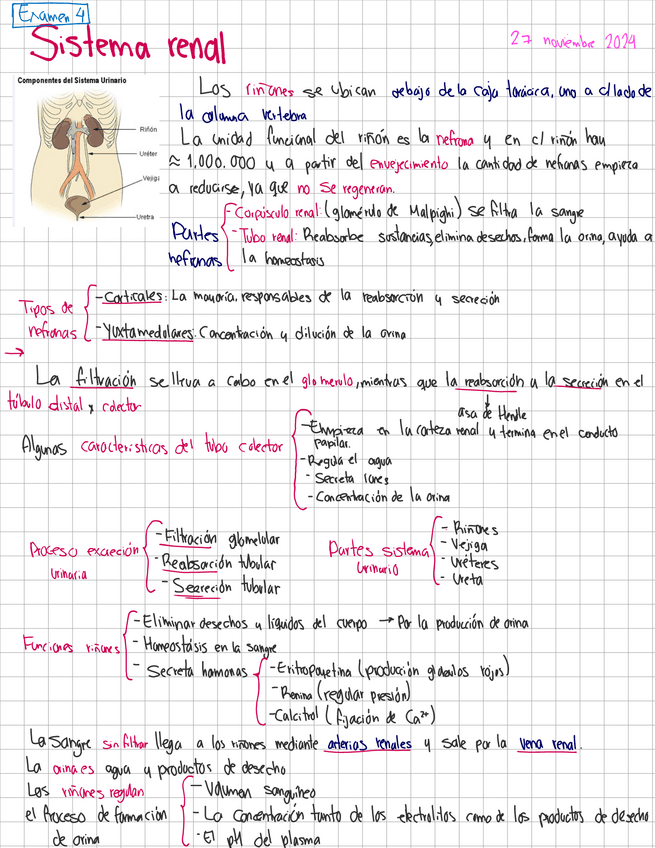 Examen 4
Sistema renal
27 noviembre 2024
Componentes del Sistema Urinario
Riñón
Uréter
Vejiga
Uretra
Los riñones se ubican debajo de la caja torácica, uno a c/lado de
la columna vertebra
La unidad funcional del riñón es la nefrona y en c/ riñón hay
≈ 1,000,000 y a partir del envejecimiento la cantidad de nefronas empieza
a reducirse, ya que no se regeneran.
Partes nefronas
- Corpúsculo renal: (glomérulo de Malpighi) se filtra la sangre
- Tubo renal: Reabsorbe sustancias, elimina desechos, forma la orina, ayuda a
la homeostasis
Tipos de nefronas
- Corticales: La mayoría, responsables de la reabsorción y secreción
- Yuxtamedolares: Concentración y dilución de la orina
→
La filtración se lleva a cabo en el glomerulo, mientras que la reabsorción y la secreción en el
túbulo distal y colector
asa de Henlle
Algunas caracteristicas del tubo colector
- Empieza en la corteza renal y termina en el conducto
papilar.
- Regula el agua
- Secreta iones
- Concentración de la orina
Proceso excreción urinaria
- Filtración glomelular
- Reabsorción tubular
- Secreción tubular
Partes sistema urinario
- Riñones
- Vejiga
- Uréteres
- Ureta
Funciones riñones
- Eliminar desechos y líquidos del cuerpo → Por la producción de orina
- Homeostásis en la sangre
- Secreta hormonas
- Eritropoyetina (producción glóbulos rojos)
- Renina (regular presión)
- Calcitrol (fijación de Ca²⁺)
La sangre sin filtrar llega a los riñones mediante arterias renales y sale por la vena renal.
La orina es agua y productos de desecho
Los riñones regulan
el proceso de formación
de orina
- Volumen sanguíneo
- La concentración tanto de los electrolitos como de los productos de desecho
- El pH del plasma